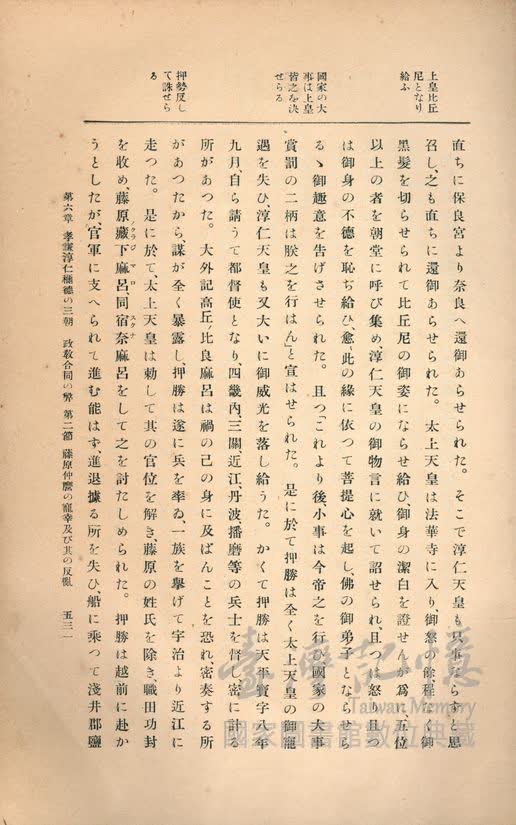 上皇比丘
尼となり
給ふ
國家の大
事は上皇
皆之を決
せらる
押勢反し
て誅せら
る
直ちに保良宮より奈良へ還御あらせられた。そこで淳仁天皇も只事ならずと思
召し、之も直ちに還御あらせられた。太上天皇は法華寺に入り、御怒の餘程なく御
黑髮を切らせられて比丘尼の御姿にならせ給ひ、御身の潔白を證せんが爲に五位
以上の者を朝堂に呼び集め、淳仁天皇の御物言に就いて詔せられ、且つは怒り且つ
は御身の不德を恥ぢ給ひ、愈〻此の緣に依つて菩提心を起し、佛の御弟子とならせら
るゝ御趣意を告げさせられた。且つ「これより後、小事は今帝之を行ひ國家の大事
賞罰の二柄は朕之を行はん」と宣はせられた。是に於て押勝は全く太上天皇の御寵
遇を失ひ、淳仁天皇も又大いに御威光を落し給うた。かくて押勝は天平寶字八年
九月、自ら請うて都督使となり、四畿內、三關、近江、丹波播磨等の兵士を督し、密に計る
所があつた。大外記高丘ノ比良麻呂は禍の己の身に及ばんことを恐れ、密奏する所
があつたから、謀が全く暴露し、押勝は遂に兵を率ゐ、一族を擧げて宇治より近江に
走つた。是に於て、太上天皇は勅して其の官位を解き、藤原の姓氏を除き、職田功封
を收め、藤原ノ藏下麻呂、同宿奈麻呂をして之を討たしめられた。押勝は越前に赴か
クラジマロ
スクナ
うとしたが、官軍に支へられて進む能はず、進退據る所を失ひ、船に乘つて淺井郡鹽
第六章 孝謙淳仁稱德の三朝 政敎合同の弊 第二節 藤原仲麿の寵幸及び其の反亂
五三一
臺灣記憶
Taiwan Memory
國家圖書館數位典藏